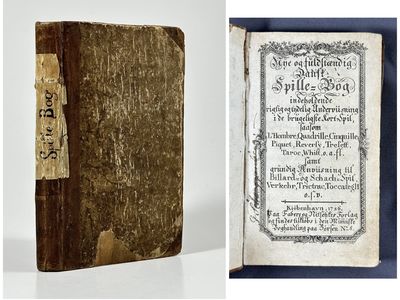 Spille Bog
Nye og fuldstændig
Dansk
Spille-Bog
indeholdende
rigtig og tydelig Underviisning
i de brugeligste Kort-Spil,
saasom
L'Hombre, Quadrille, Cinquille,
Piquet, Reversy, Tresett,
Taroc, Whist, o.a.fl.
samt
gründig Anviisning til
Billard- og Schach-Spil,
Verkehr, Trictrac, Toccategli
o.s.v.
Kjöbenhavn, 1786.
Paa Fabers og Nitschkes Forlag
og findes tilkiøbs i den
Boghandling paa Børsen No. 6.